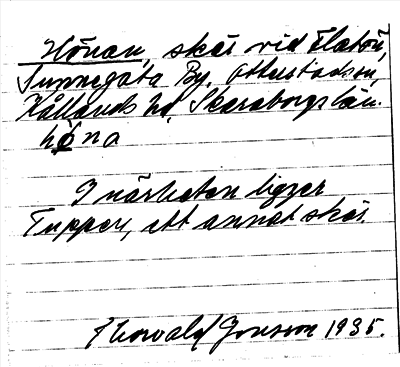 Hönan, skär vid Flatön,
Sunnegåta By, Otterstadsn,
Kållands hd, Skaraborgs län.
höna
I närheten ligger
Tuppen, ett annat skär.
Thorvald Jonsson 1935.